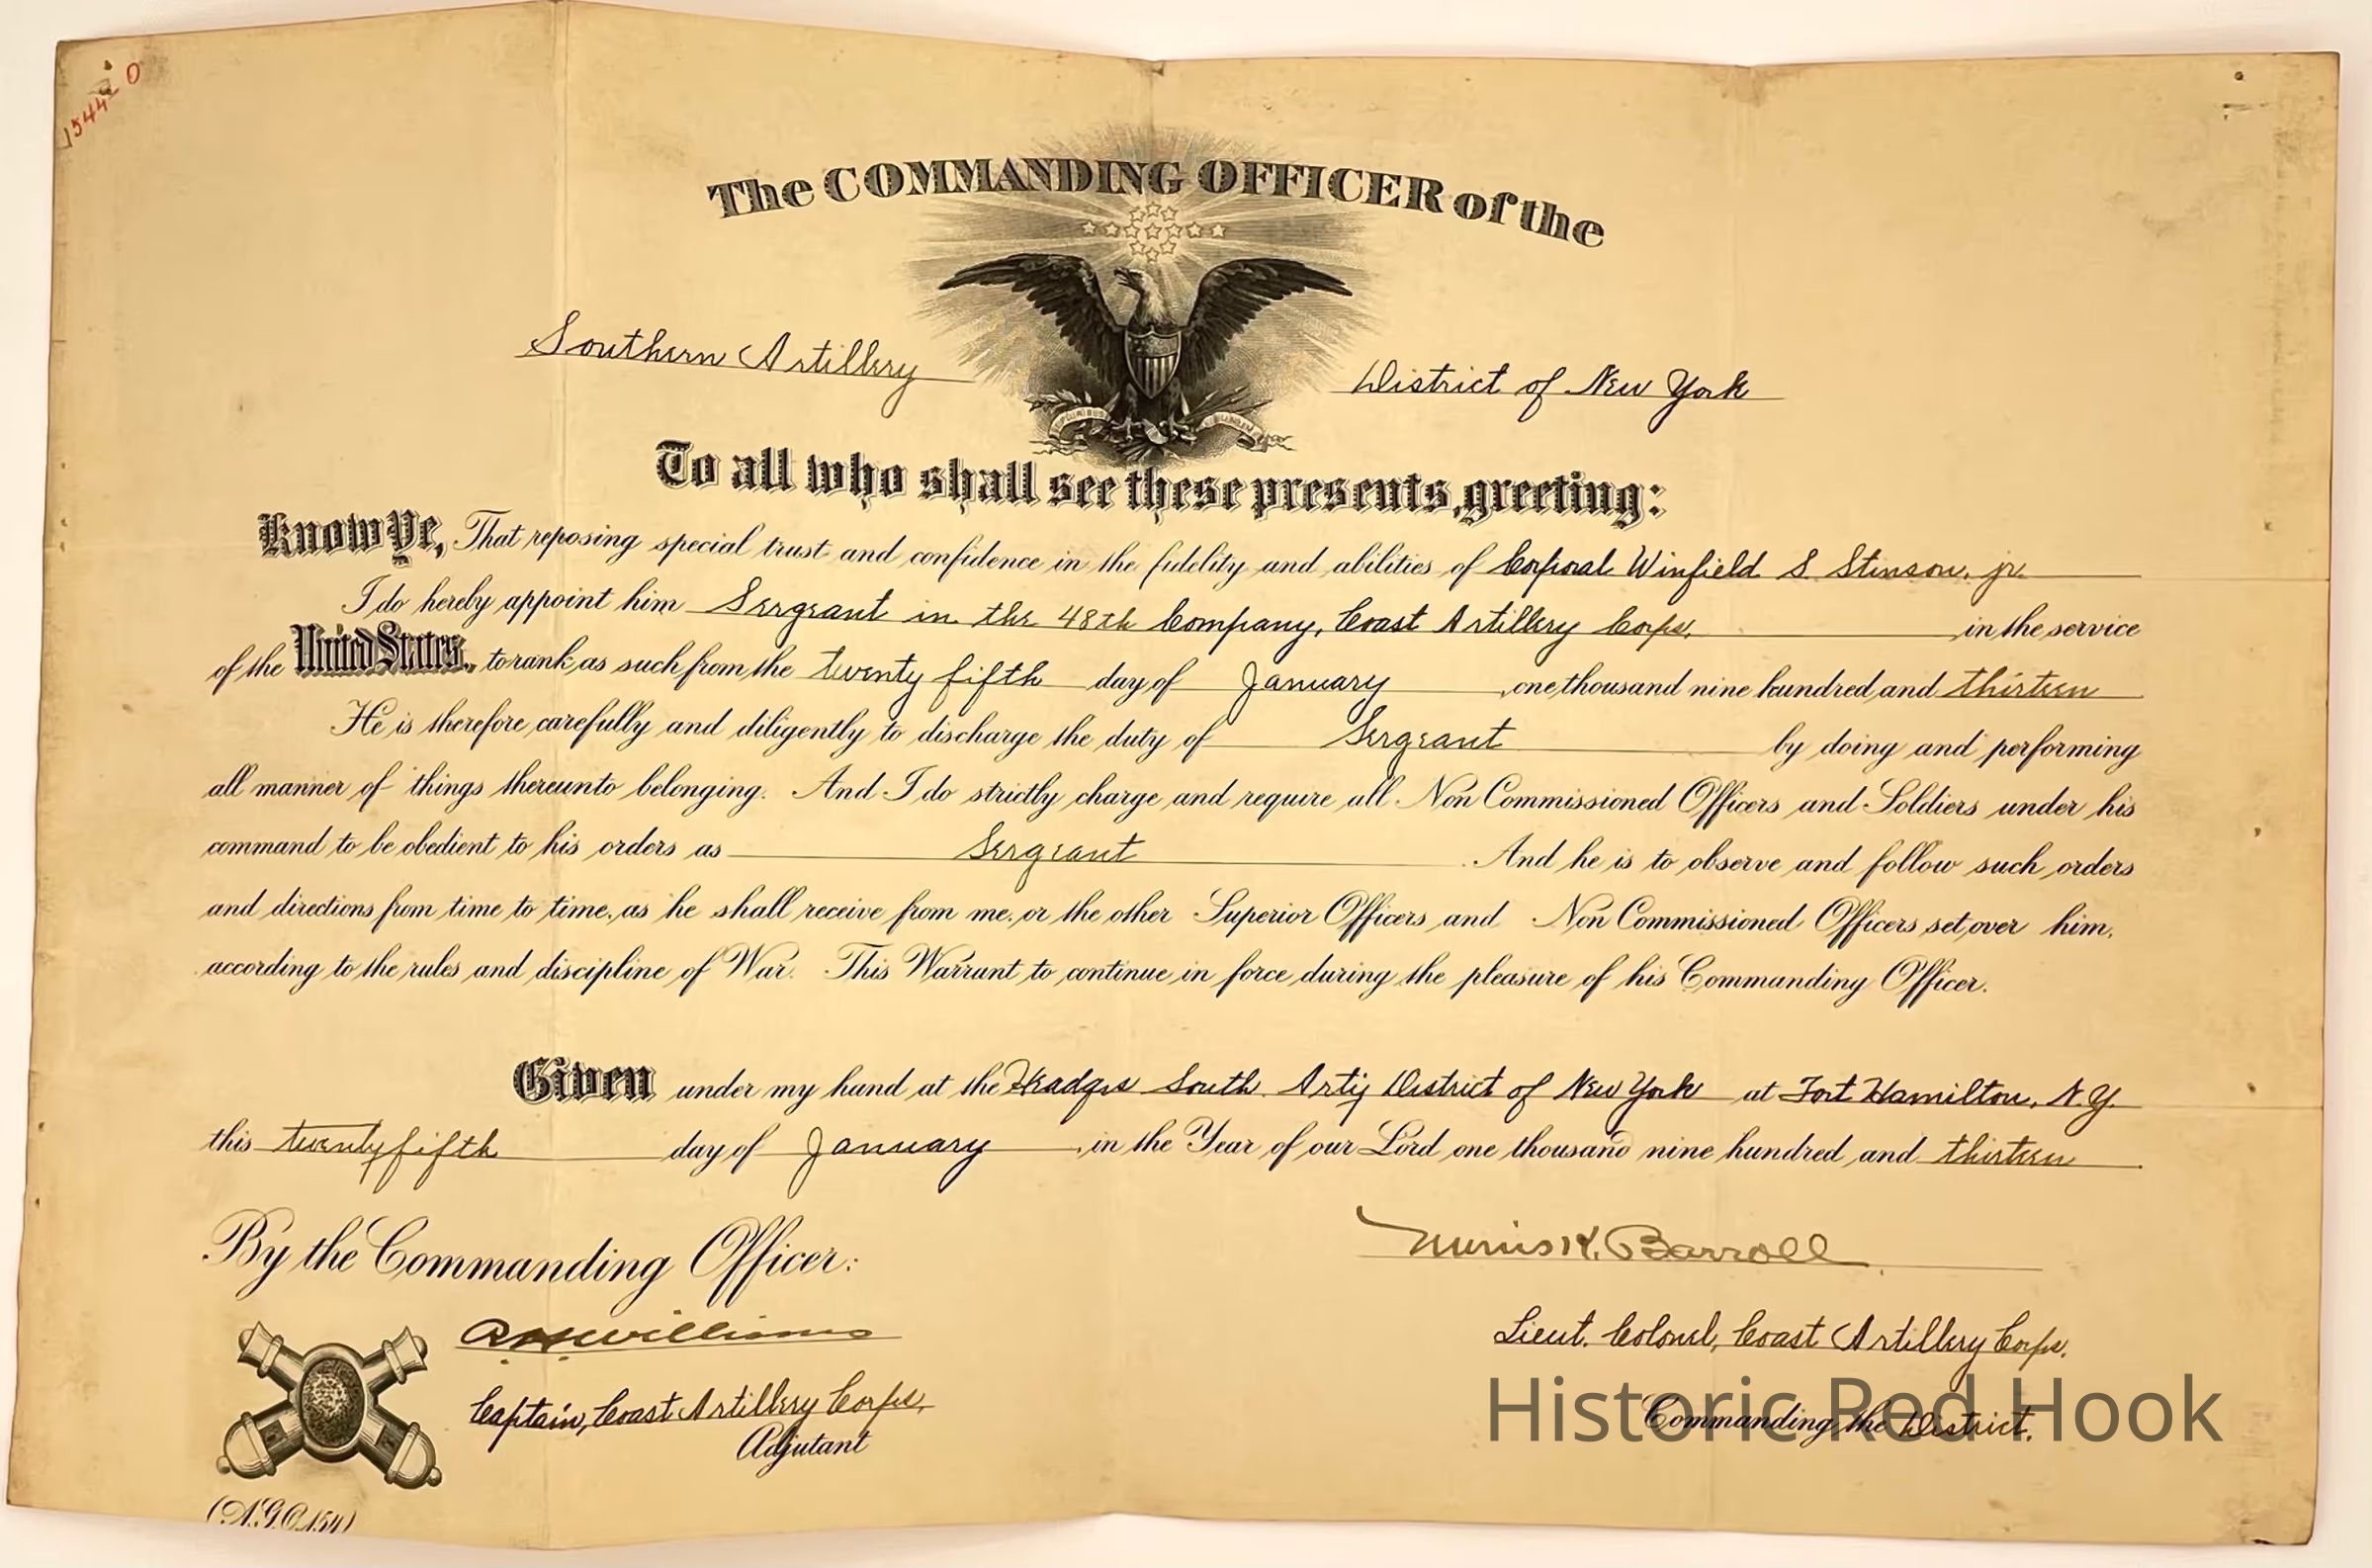 15442 0
The COMMANDING OFFICER of the
Southern Artillery District of New York
To all who shall see these presents, greeting:
Know Ye, That reposing special trust and confidence in the fidelity and abilities of Corporal Winfield S. Stinson, jr.
I do hereby appoint him Sergeant in the 48th Company, Coast Artillery Corps, in the service
of the United States, to rank as such from the twenty fifth day of January, one thousand nine hundred and thirteen
He is therefore carefully and diligently to discharge the duty of Sergeant by doing and performing
all manner of things thereunto belonging. And I do strictly charge and require all Non Commissioned Officers and Soldiers under his
command to be obedient to his orders as Sergeant. And he is to observe and follow such orders
and directions from time to time, as he shall receive from me, or the other Superior Officers and Non Commissioned Officers set over him,
according to the rules and discipline of War. This Warrant to continue in force during the pleasure of his Commanding Officer.
Given under my hand at the Headqrs South. Arty District of New York at Fort Hamilton, N.Y.
this twenty fifth day of January, in the Year of our Lord one thousand nine hundred and thirteen.
By the Commanding Officer:
Morris K. Barroll
Williams
Lieut. Colonel, Coast Artillery Corps,
Captain, Coast Artillery Corps,
Commanding the District.
Adjutant
Historic Red Hook
(A.G.O. 154)